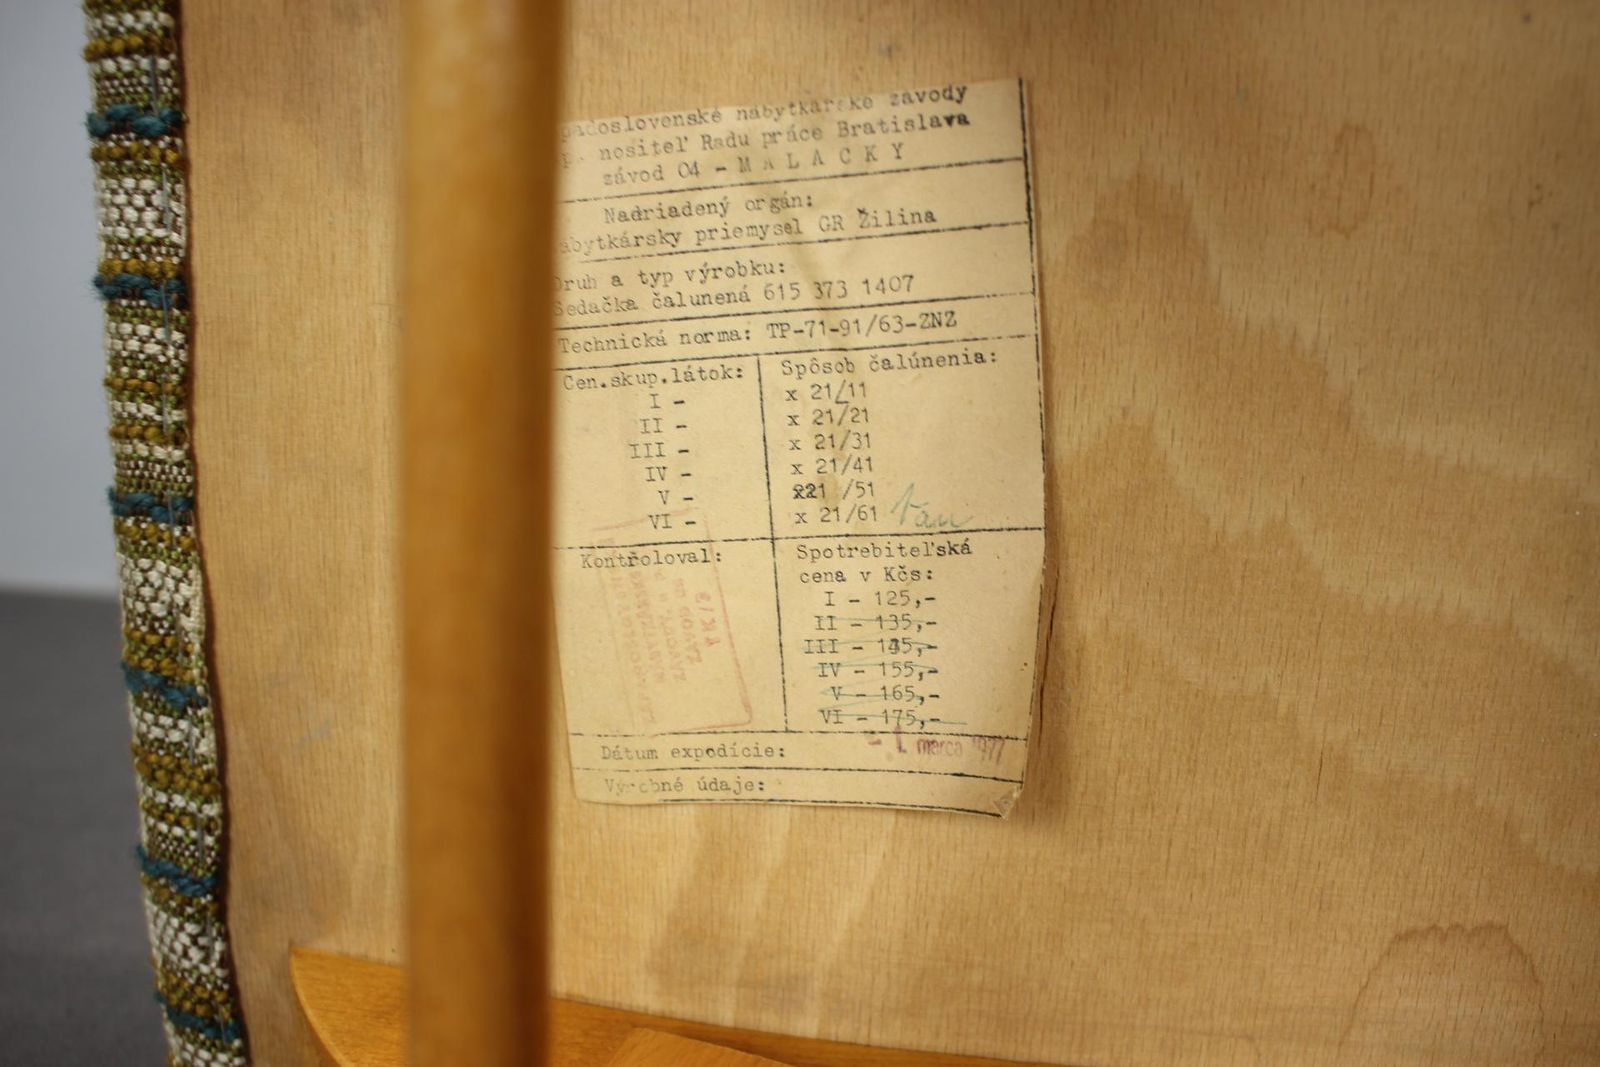 padoslovenské nábytkárske závody
nositeľ Radu práce Bratislava
závod 04 - M A L A C K Y
Nadriadený orgán:
ábytkársky priemysel GR Žilina
Druh a typ výrobku:
Sedačka čalunená 615 373 1407
Technická norma: TP-71-91/63-ZNZ
Cen.skup.látok:
I -
II -
III -
IV -
V -
VI -
Spôsob čalúnenia:
x 21/11
x 21/21
x 21/31
x 21/41
x21 /51
x 21/61
Kontroloval:
Spotrebiteľská
cena v Kčs:
I - 125,-
II - 135,-
III - 145,-
IV - 155,-
V - 165,-
VI - 175,-
Dátum expedície:
- 1. marca 1977
Výrobné údaje: